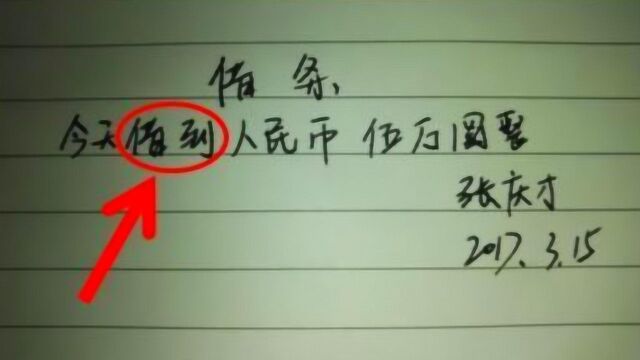 借条
今天借到人民币伍万圆整
张庆才
2017.3.15